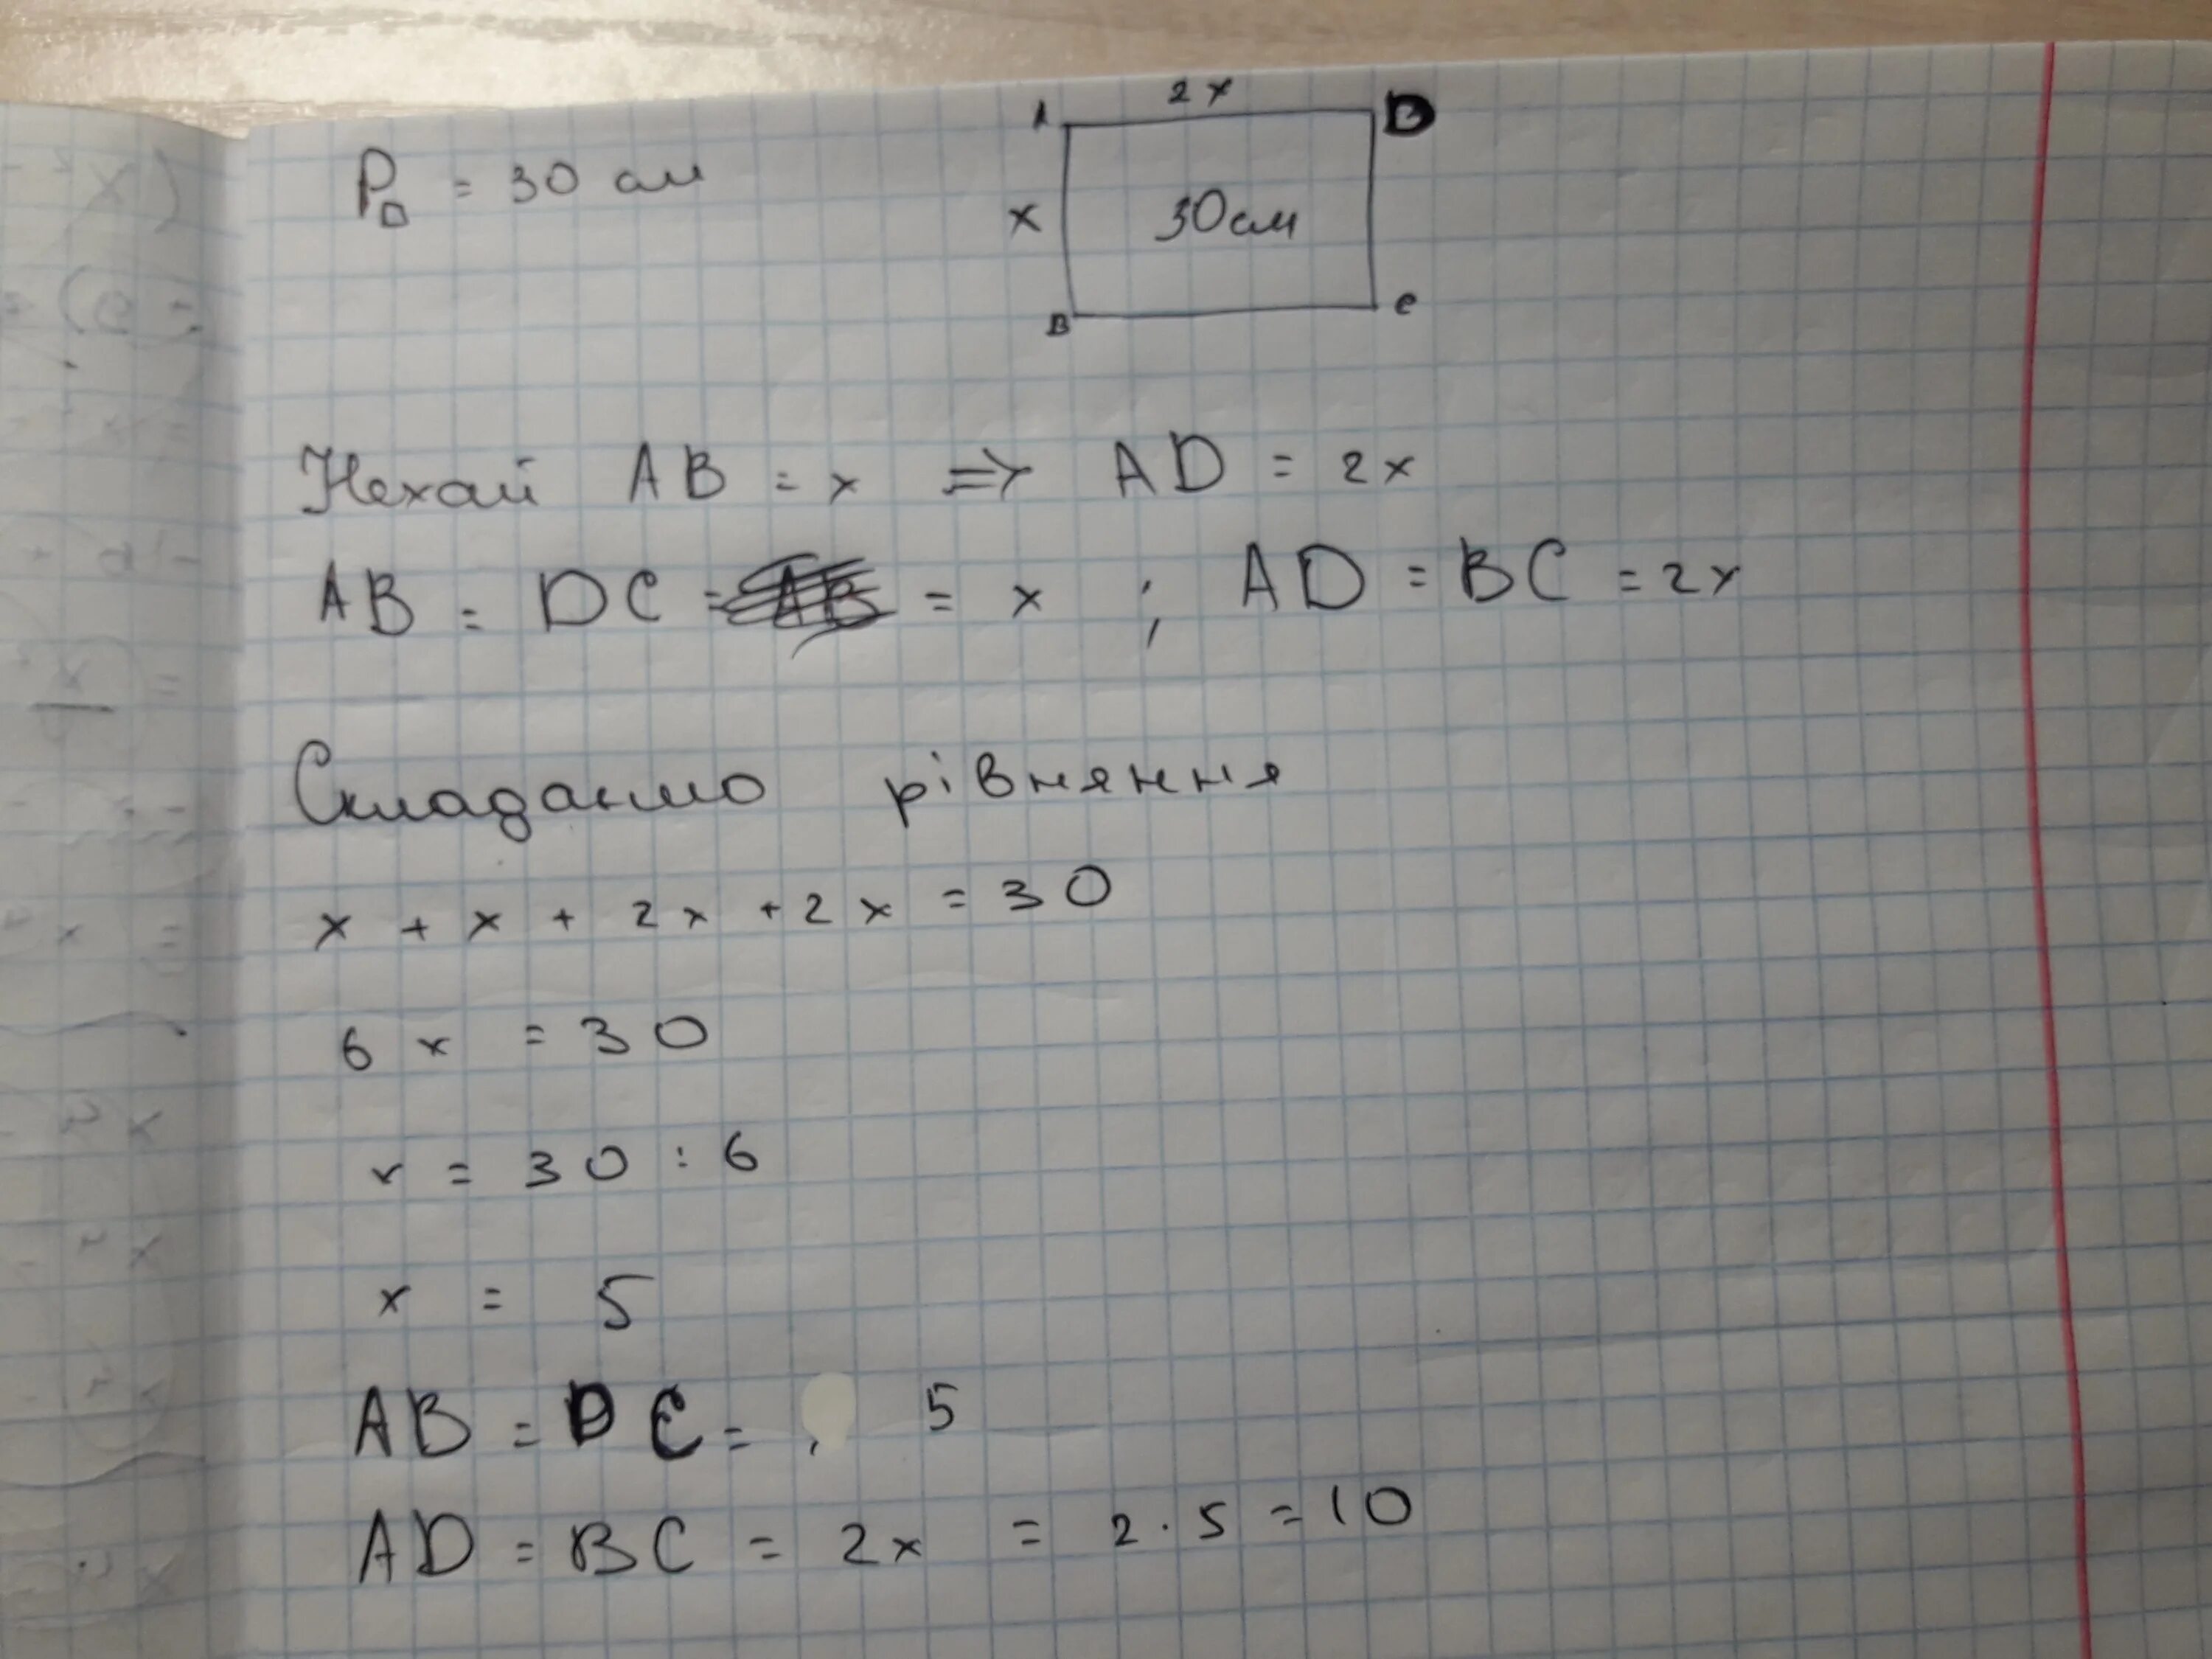 P□ = 30 см
2x
A D
x
30см
B C
Нехай AB = x => AD = 2x
AB = DC = = x ; AD = BC = 2x
Складаємо рівняння
x + x + 2x + 2x = 30
6x = 30
x = 30 : 6
x = 5
AB = DC = 5
AD = BC = 2x = 2 · 5 = 10